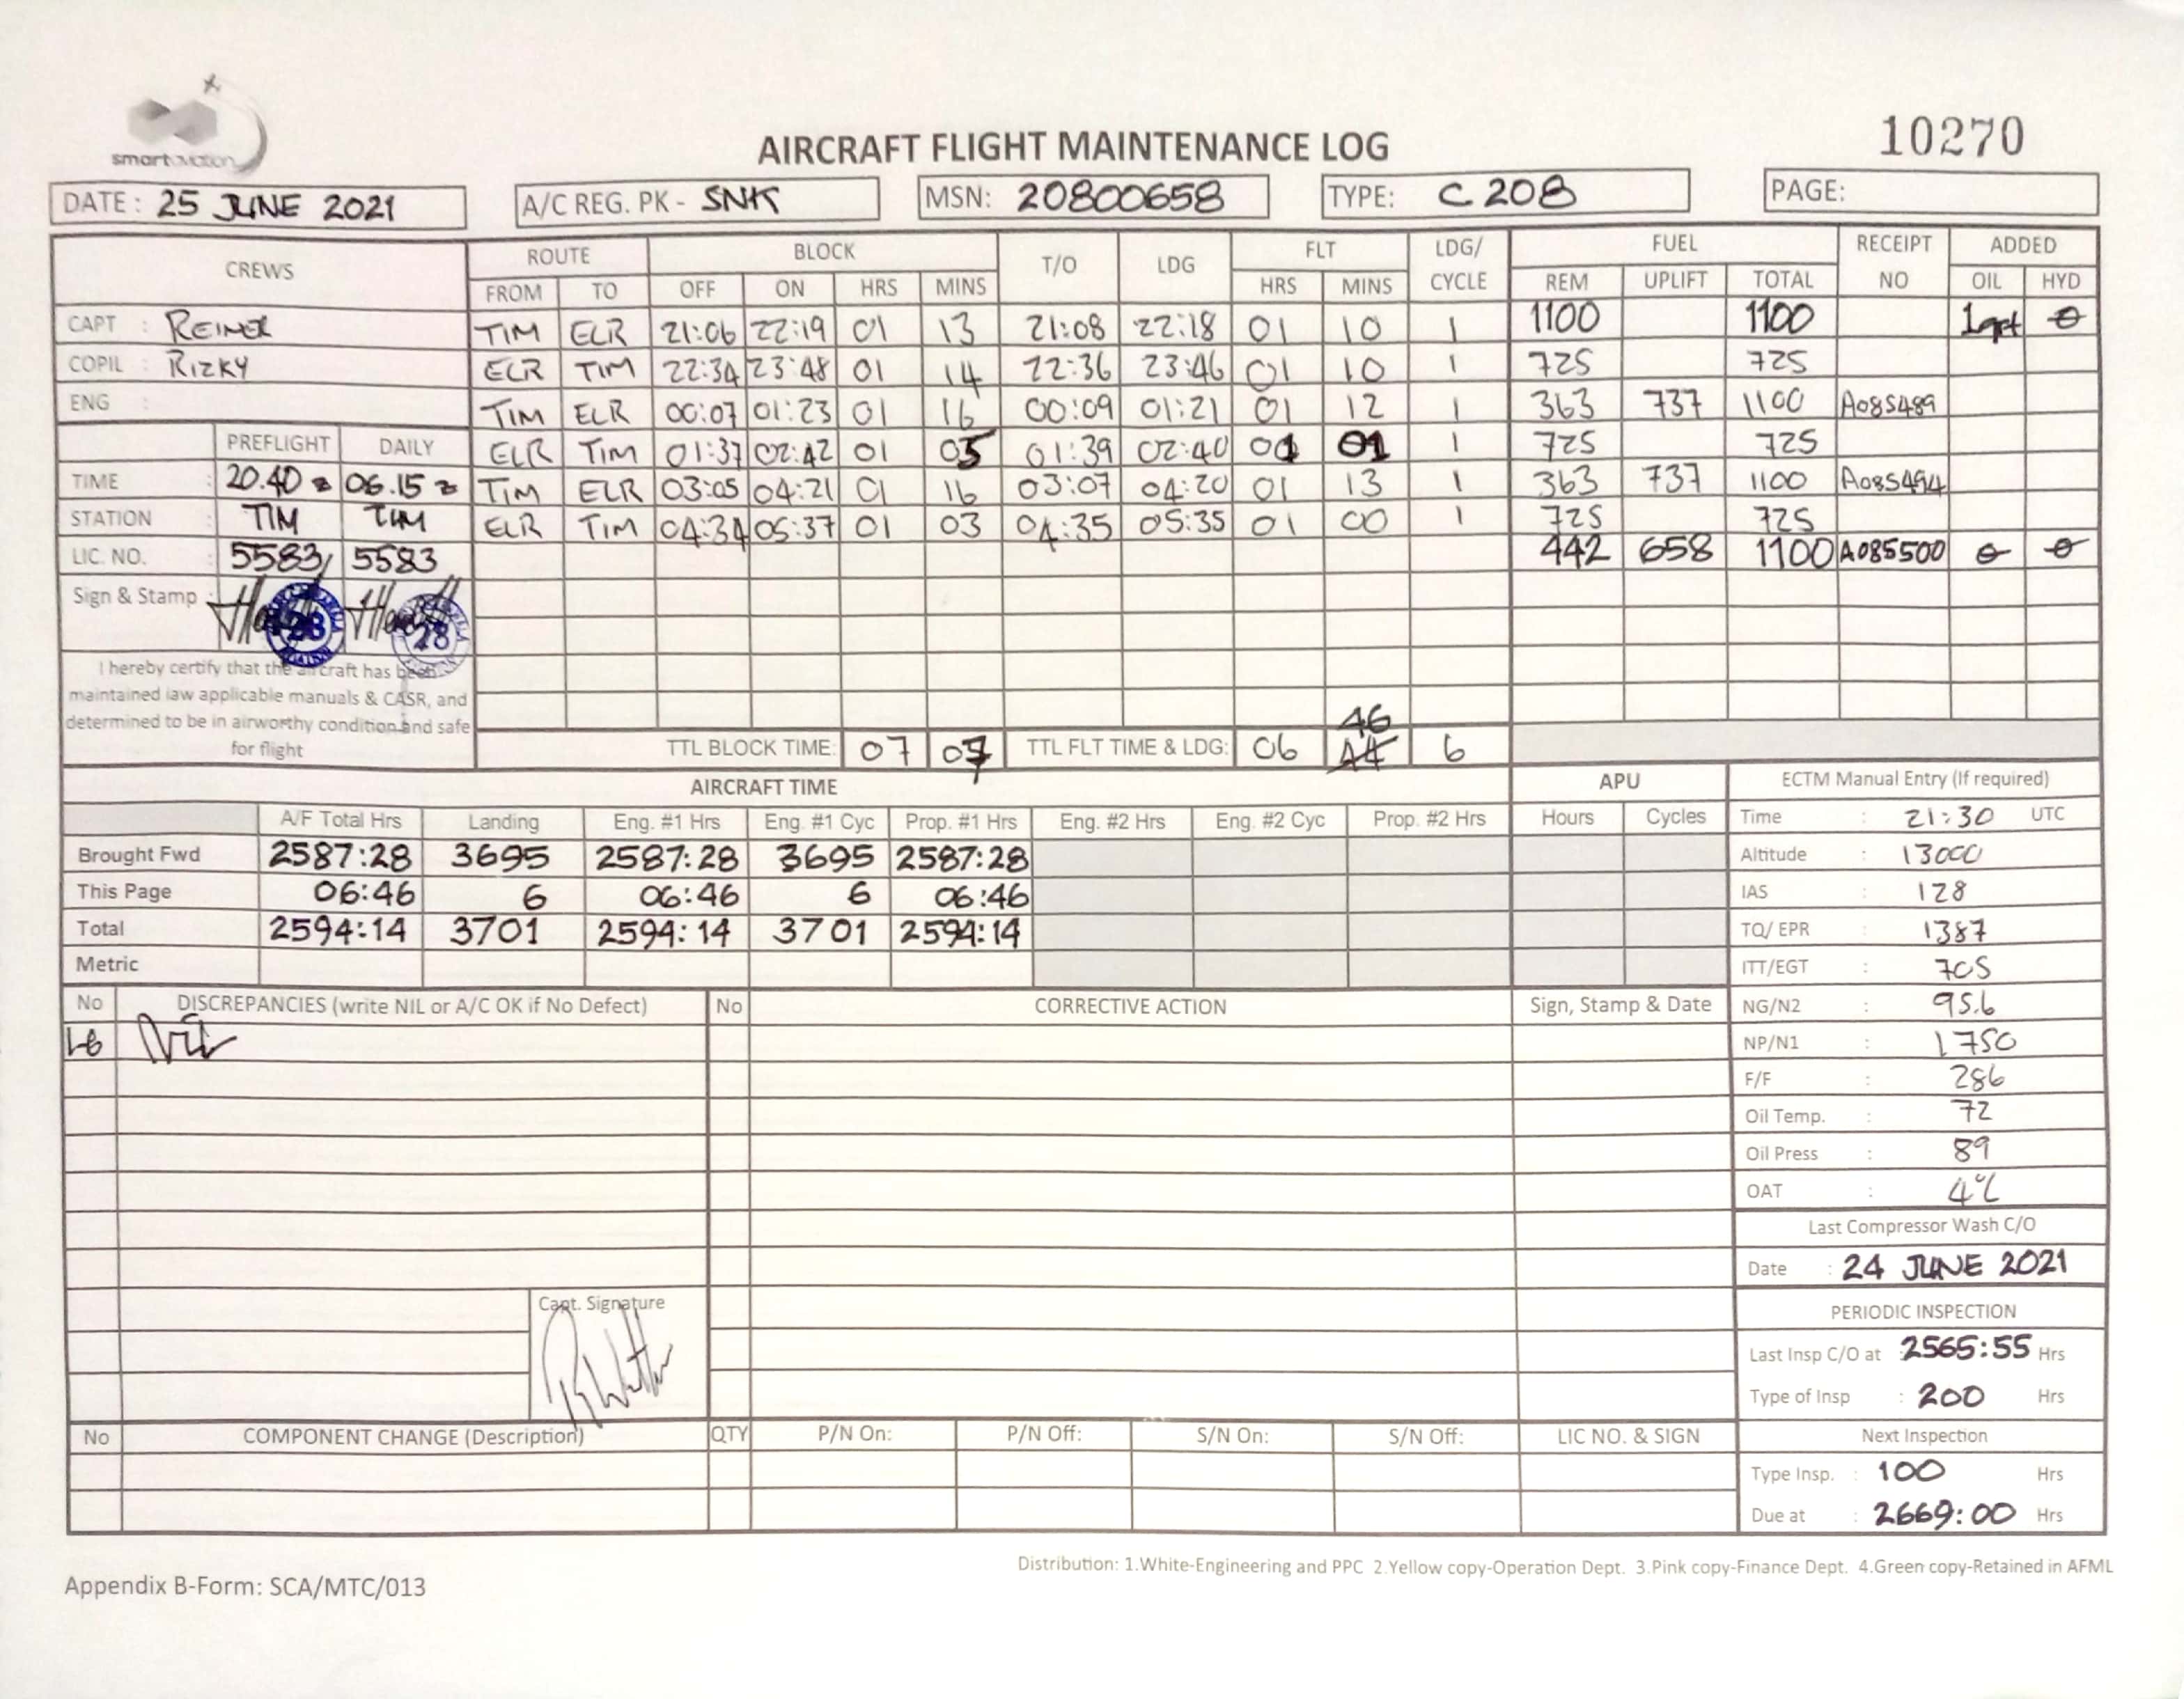 smart aviation
10270
AIRCRAFT FLIGHT MAINTENANCE LOG
DATE : 25 JUNE 2021 A/C REG. PK - SNK MSN: 20800658 TYPE: C 208 PAGE:
CREWS ROUTE BLOCK T/O LDG FLT LDG/ FUEL RECEIPT ADDED
FROM TO OFF ON HRS MINS HRS MINS CYCLE REM UPLIFT TOTAL NO OIL HYD
CAPT : REINER TIM ELR 21:06 22:19 01 13 21:08 22:18 01 10 1 1100 1100 1qrt
COPIL : RIZKY ELR TIM 22:34 23:48 01 14 22:36 23:46 01 10 1 725 725
ENG : TIM ELR 00:07 01:23 01 16 00:09 01:21 01 12 1 363 737 1100 A085489
PREFLIGHT DAILY ELR TIM 01:37 02:42 01 05 01:39 02:40 01 01 1 725 725
TIME : 20.40 z 06.15 z TIM ELR 03:05 04:21 01 16 03:07 04:20 01 13 1 363 737 1100 A085494
STATION : TIM TIM ELR TIM 04:34 05:37 01 03 04:35 05:35 01 00 1 725 725
LIC. NO. : 5583 5583 442 658 1100 A085500
Sign & Stamp : 28 28
I hereby certify that the aircraft has been
maintained iaw applicable manuals & CASR, and
determined to be in airworthy condition and safe
for flight
46
TTL BLOCK TIME: 07 07 TTL FLT TIME & LDG: 06 44 6
AIRCRAFT TIME APU ECTM Manual Entry (If required)
A/F Total Hrs Landing Eng. #1 Hrs Eng. #1 Cyc Prop. #1 Hrs Eng. #2 Hrs Eng. #2 Cyc Prop. #2 Hrs Hours Cycles Time : 21:30 UTC
Brought Fwd 2587:28 3695 2587:28 3695 2587:28 Altitude : 13000
This Page 06:46 6 06:46 6 06:46 IAS : 128
Total 2594:14 3701 2594:14 3701 2594:14 TQ/ EPR : 1387
Metric ITT/EGT : 705
No DISCREPANCIES (write NIL or A/C OK if No Defect) No CORRECTIVE ACTION Sign, Stamp & Date NG/N2 : 95.6
1-6 Nil NP/N1 : 1750
F/F : 286
Oil Temp. : 72
Oil Press : 89
OAT : 4°C
Last Compressor Wash C/O
Date : 24 JUNE 2021
Capt. Signature
PERIODIC INSPECTION
Last Insp C/O at : 2565:55 Hrs
Type of Insp : 200 Hrs
No COMPONENT CHANGE (Description) QTY P/N On: P/N Off: S/N On: S/N Off: LIC NO. & SIGN Next Inspection
Type Insp. : 100 Hrs
Due at : 2669:00 Hrs
Distribution: 1.White-Engineering and PPC 2.Yellow copy-Operation Dept. 3.Pink copy-Finance Dept. 4.Green copy-Retained in AFML
Appendix B-Form: SCA/MTC/013